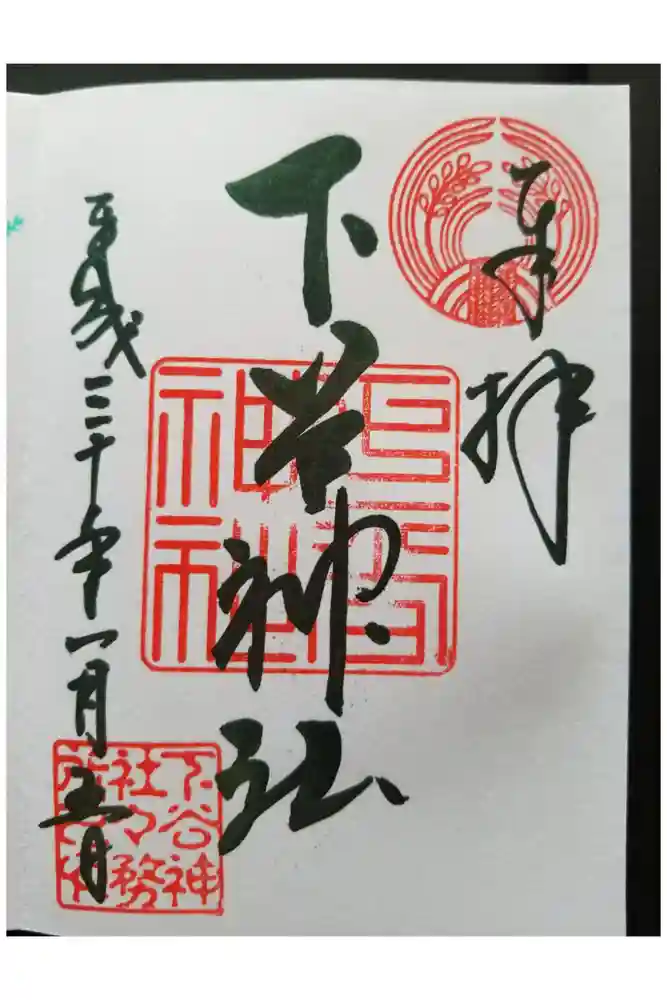 奉拝
下谷神社
下谷
神社
平成三十年一月五日
下谷神
社々務
所之印